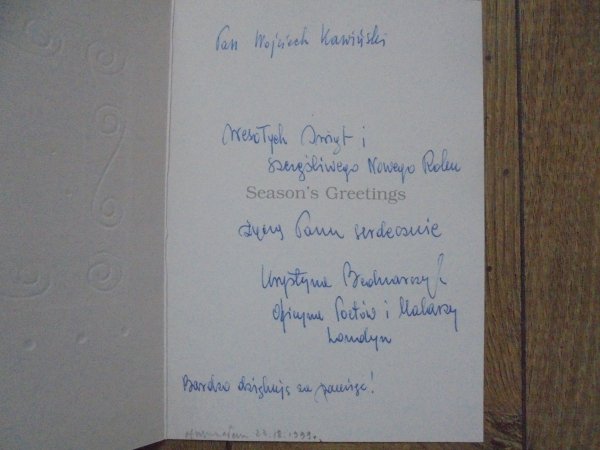 Pan Wojciech Kawiński
Wesołych Świąt i
szczęśliwego Nowego Roku
Season's Greetings
życzę Panu serdecznie
Krystyna Bednarczyk
Oficyna Poetów i Malarzy
Londyn
Bardzo dziękuję za pamięć!
22.12.1999r.